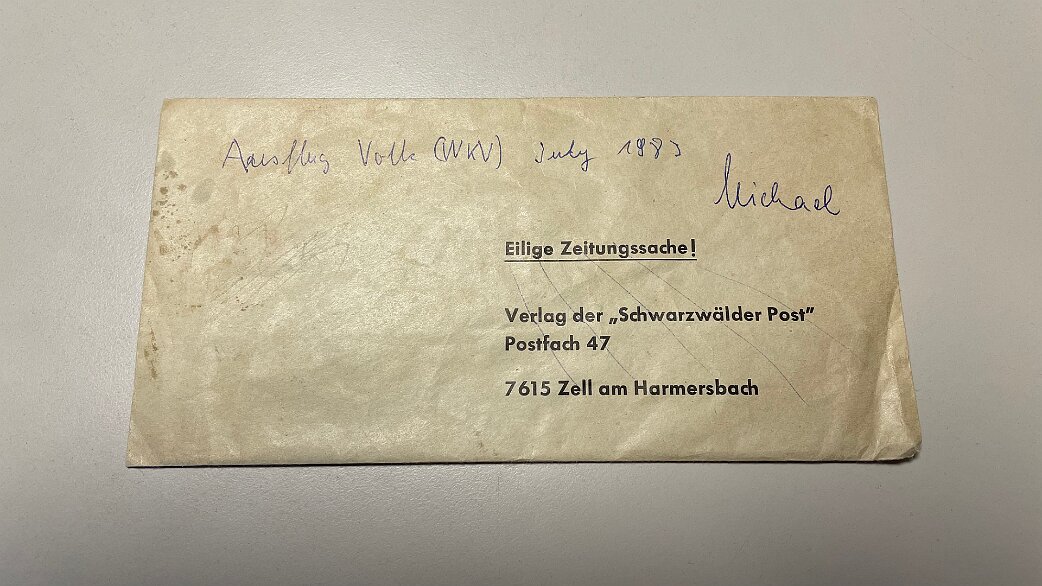 Ausflug Volk (WKV) July 1983
Michael
Eilige Zeitungssache!
Verlag der „Schwarzwälder Post”
Postfach 47
7615 Zell am Harmersbach